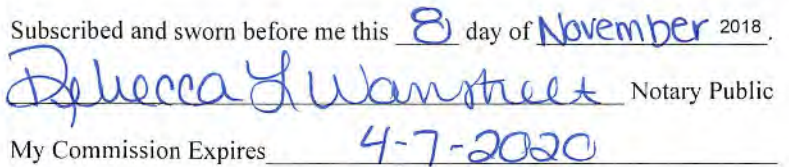 Subscribed and sworn before me this 8 day of November 2018.
Rebecca L Wanstreet Notary Public
My Commission Expires 4-7-2020